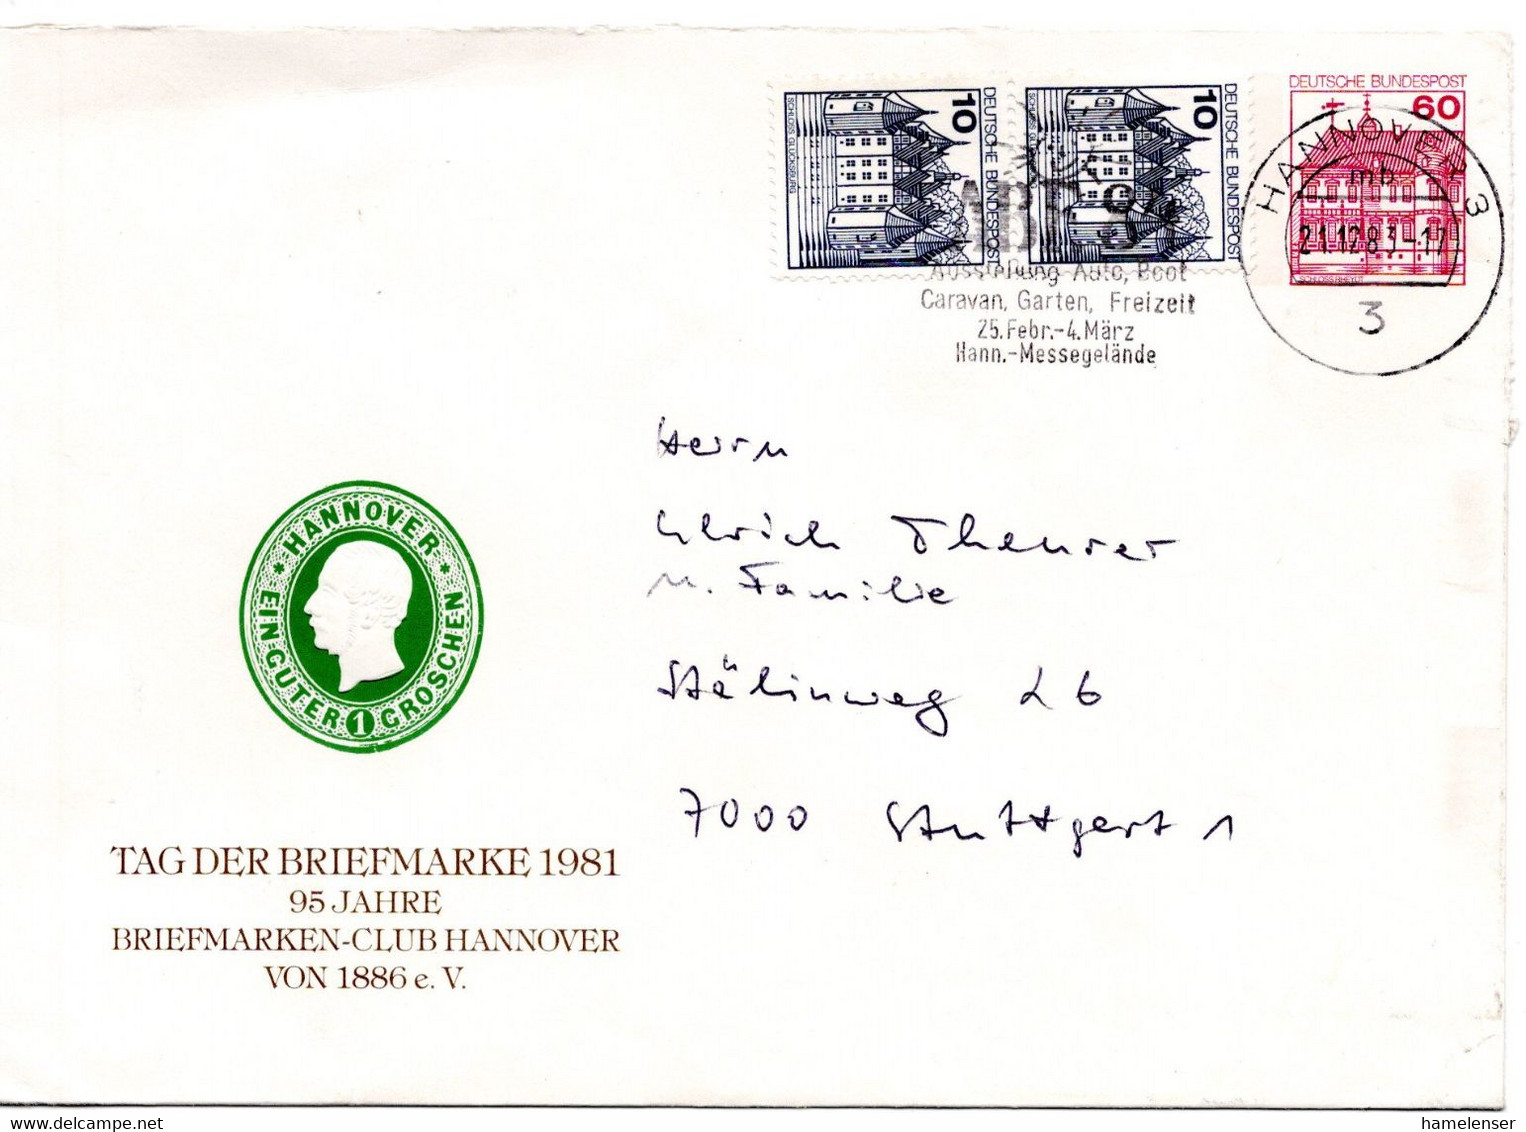 DEUTSCHE BUNDESPOST
10
SCHLOSS GLÜCKSBURG
DEUTSCHE BUNDESPOST
10
DEUTSCHE BUNDESPOST
60
SCHLOSS RHEYDT
HANNOVER 3
mb
21.12.83-17
3
ABF 84
Ausstellung Auto, Boot
Caravan, Garten, Freizeit
25.Febr.-4.März
Hann.-Messegelände
Herrn
Ulrich
u. Familie
Stälinweg 26
7000 Stuttgart 1
* HANNOVER *
EIN GUTER 1 GROSCHEN
TAG DER BRIEFMARKE 1981
95 JAHRE
BRIEFMARKEN-CLUB HANNOVER
VON 1886 e. V.
hamelenser